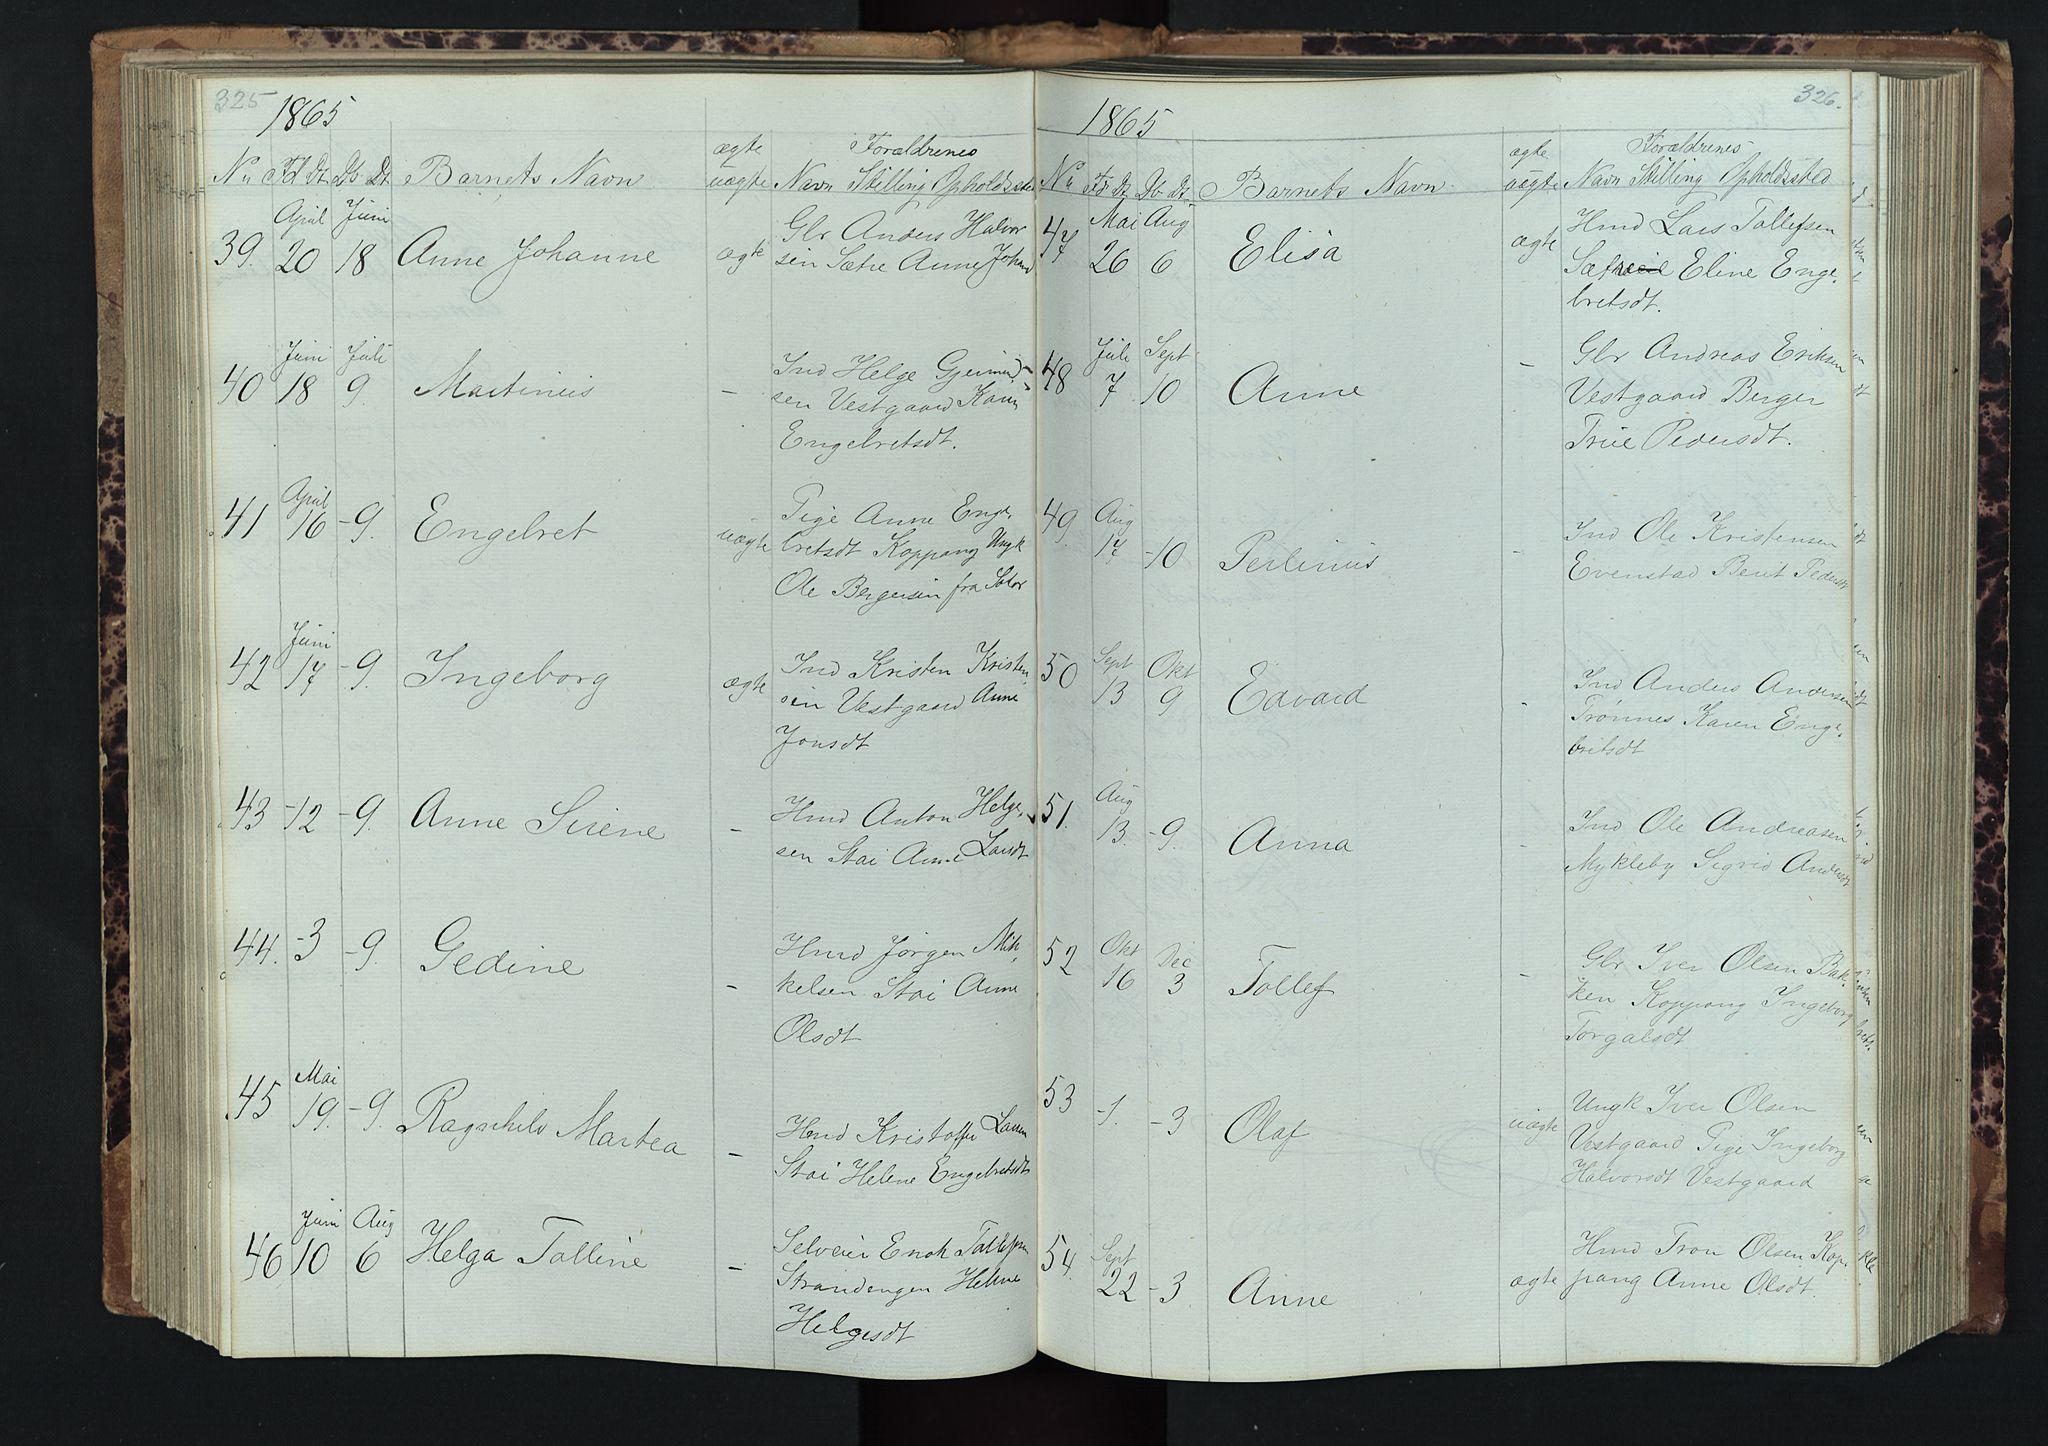 325
1865
Forældrenes
ægte
No Fd Dt. Db Dt. Barnets Navn uægte Navn Stilling Opholdssted
April Juni
39. 20 18 Anne Johanne ægte Glr Anders Halvor
sen Sætre Anne Johand
Juni Juli
40 18 9. Martinus - Ind Helge Gjermund-
sen Vestgaard Karen
Engelbretsdt.
April
41 16 -9. Engelbret uægte Pige Anne Enge,
bretsdt Koppang Ungk
Ole Bergersen fra Solør
Juni
42 17 -9. Ingeborg ægte Ind Kristen Kristen,
sen Vestgaard Anne
Jonsdt
43 -12 -9. Anne Sirene - Hmd Anton Helge,
sen Stai Anne Larsdt
44. -3 -9. Gedine - Hmd Jørgen Mik,
kelsen Stai Anne
Olsdt
Mai
45 19. -9. Ragnhild Martea - Hmd Kristoffer Larsen
Stai Helene Engebretsdt
Juni Aug
46 10 6 Helga Tolline - Selveier Enok Tollefsen
Strandengen Helene
Helgesdt
326.
1865
Forældrenes
ægte
No Fd Dt. Db Dt. Barnets Navn uægte Navn Stilling Opholdssted
Mai Aug
47 26 6 Elisa ægte Hmd Lars Tollefsen
Sætre Eline Enge,
bretsdt.
Juli Sept
48 7 10 Anne - Glr Andreas Eriksen
Vestgaard Berger
True Pedersdt.
Aug
49. 17 -10 Perlinus - Ind Ole Kristensen
Evenstad Berit Pedersdt
Sept Okt
50 13 9 Edvard - Ind Anders Andersen
Trønnes Karen Enge,
bretsdt
Aug
51. 13. -9. Anna - Ind Ole Andreasen
Mykleby Sigrid Andersdt
Okt Dec
52 16 3 Tollef - Glr Iver Olsen Bak,
ken Koppang Ingeborg
Torgalsdt
53 -1. -3 Olaf uægte Ungk Iver Olsen
Vestgaard Pige Ingeborg
Halvorsdt Vestgaard
Sept
54. 22 -3 Anne ægte Hmd Tron Olsen Kop,
pang Anne Olsdt.